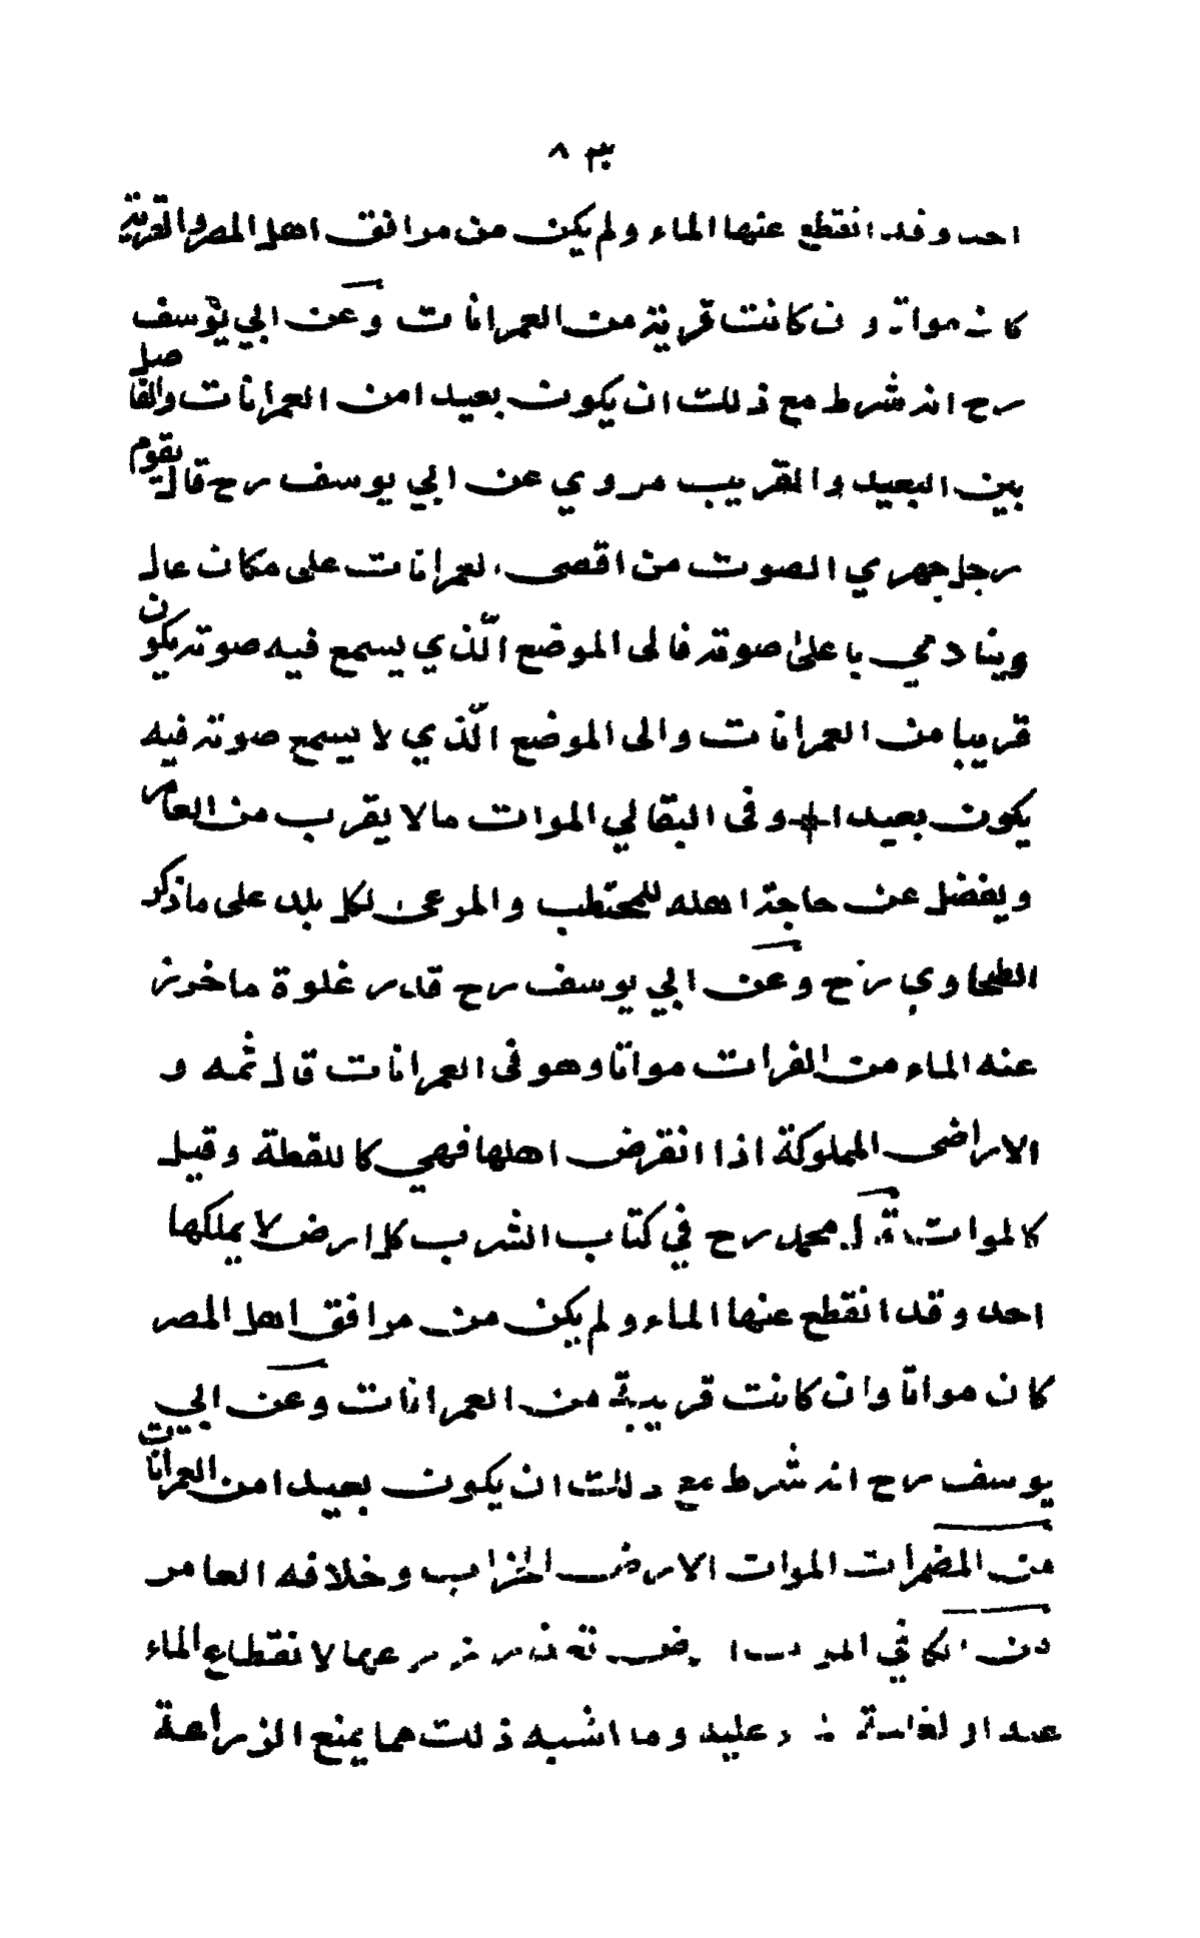 احد وقد انقطع عنها الماء ولم يكن من مرافق اهل المصر والقرية
كان مواتا و ن كانت قرية من العمرانات وعن ابي يوسف
رح انه شرط مع ذلك ان يكون بعيدا من العمرانات والفاصل
بين البعيد والقريب مروي عن ابي يوسف رح قال يقوم
رجل جهري الصوت من اقصى العمرانات على مكان عال
وينادي باعلى صوته فالى الموضع الّذي يسمع فيه صوته يكون
قريبا من العمرانات والى الموضع الّذي لا يسمع صوته فيه
يكون بعيدا وفى البقالي الموات مالا يقرب من العامر
ويفضل عن حاجة اهله للمحتطب والمرعى لكل بلد على ماذكر
الطحاوي رح وعن ابي يوسف رح قدر غلوة ماخرز
عنه الماء من الفرات مواتا وهو فى العمرانات قال ثمه و
الاراضى المملوكة اذا انقرض اهلها فهي كاللقطة وقيل
كالموات قال محمد رح في كتاب الشرب كل ارض لا يملكها
احد وقد انقطع عنها الماء ولم يكن من مرافق اهل المصر
كان مواتا وان كانت قريبة من العمرانات وعن ابي
يوسف رح انه شرط مع ذلك ان يكون بعيدا من العمرانات
من المضمرات الموات الارض الخراب وخلافه العامر
من الكافي الموات ارض تعذر زرعها لانقطاع الماء
عنه او لغلبة عليه وما اشبه ذلك مما يمنع الزراعة